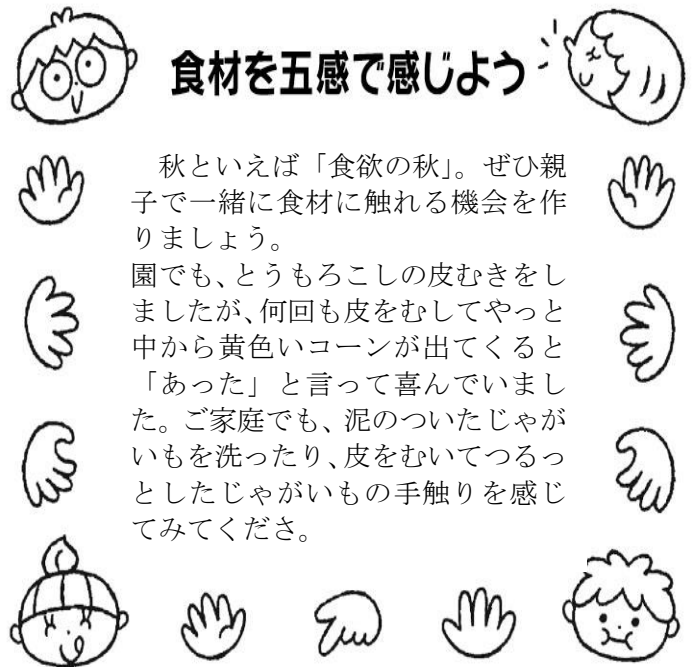 食材を五感で感じよう
秋といえば「食欲の秋」。ぜひ親
子で一緒に食材に触れる機会を作
りましょう。
園でも、とうもろこしの皮むきをし
ましたが、何回も皮をむしてやっと
中から黄色いコーンが出てくると
「あった」と言って喜んでいまし
た。ご家庭でも、泥のついたじゃが
いもを洗ったり、皮をむいてつるっ
としたじゃがいもの手触りを感じ
てみてくださ。